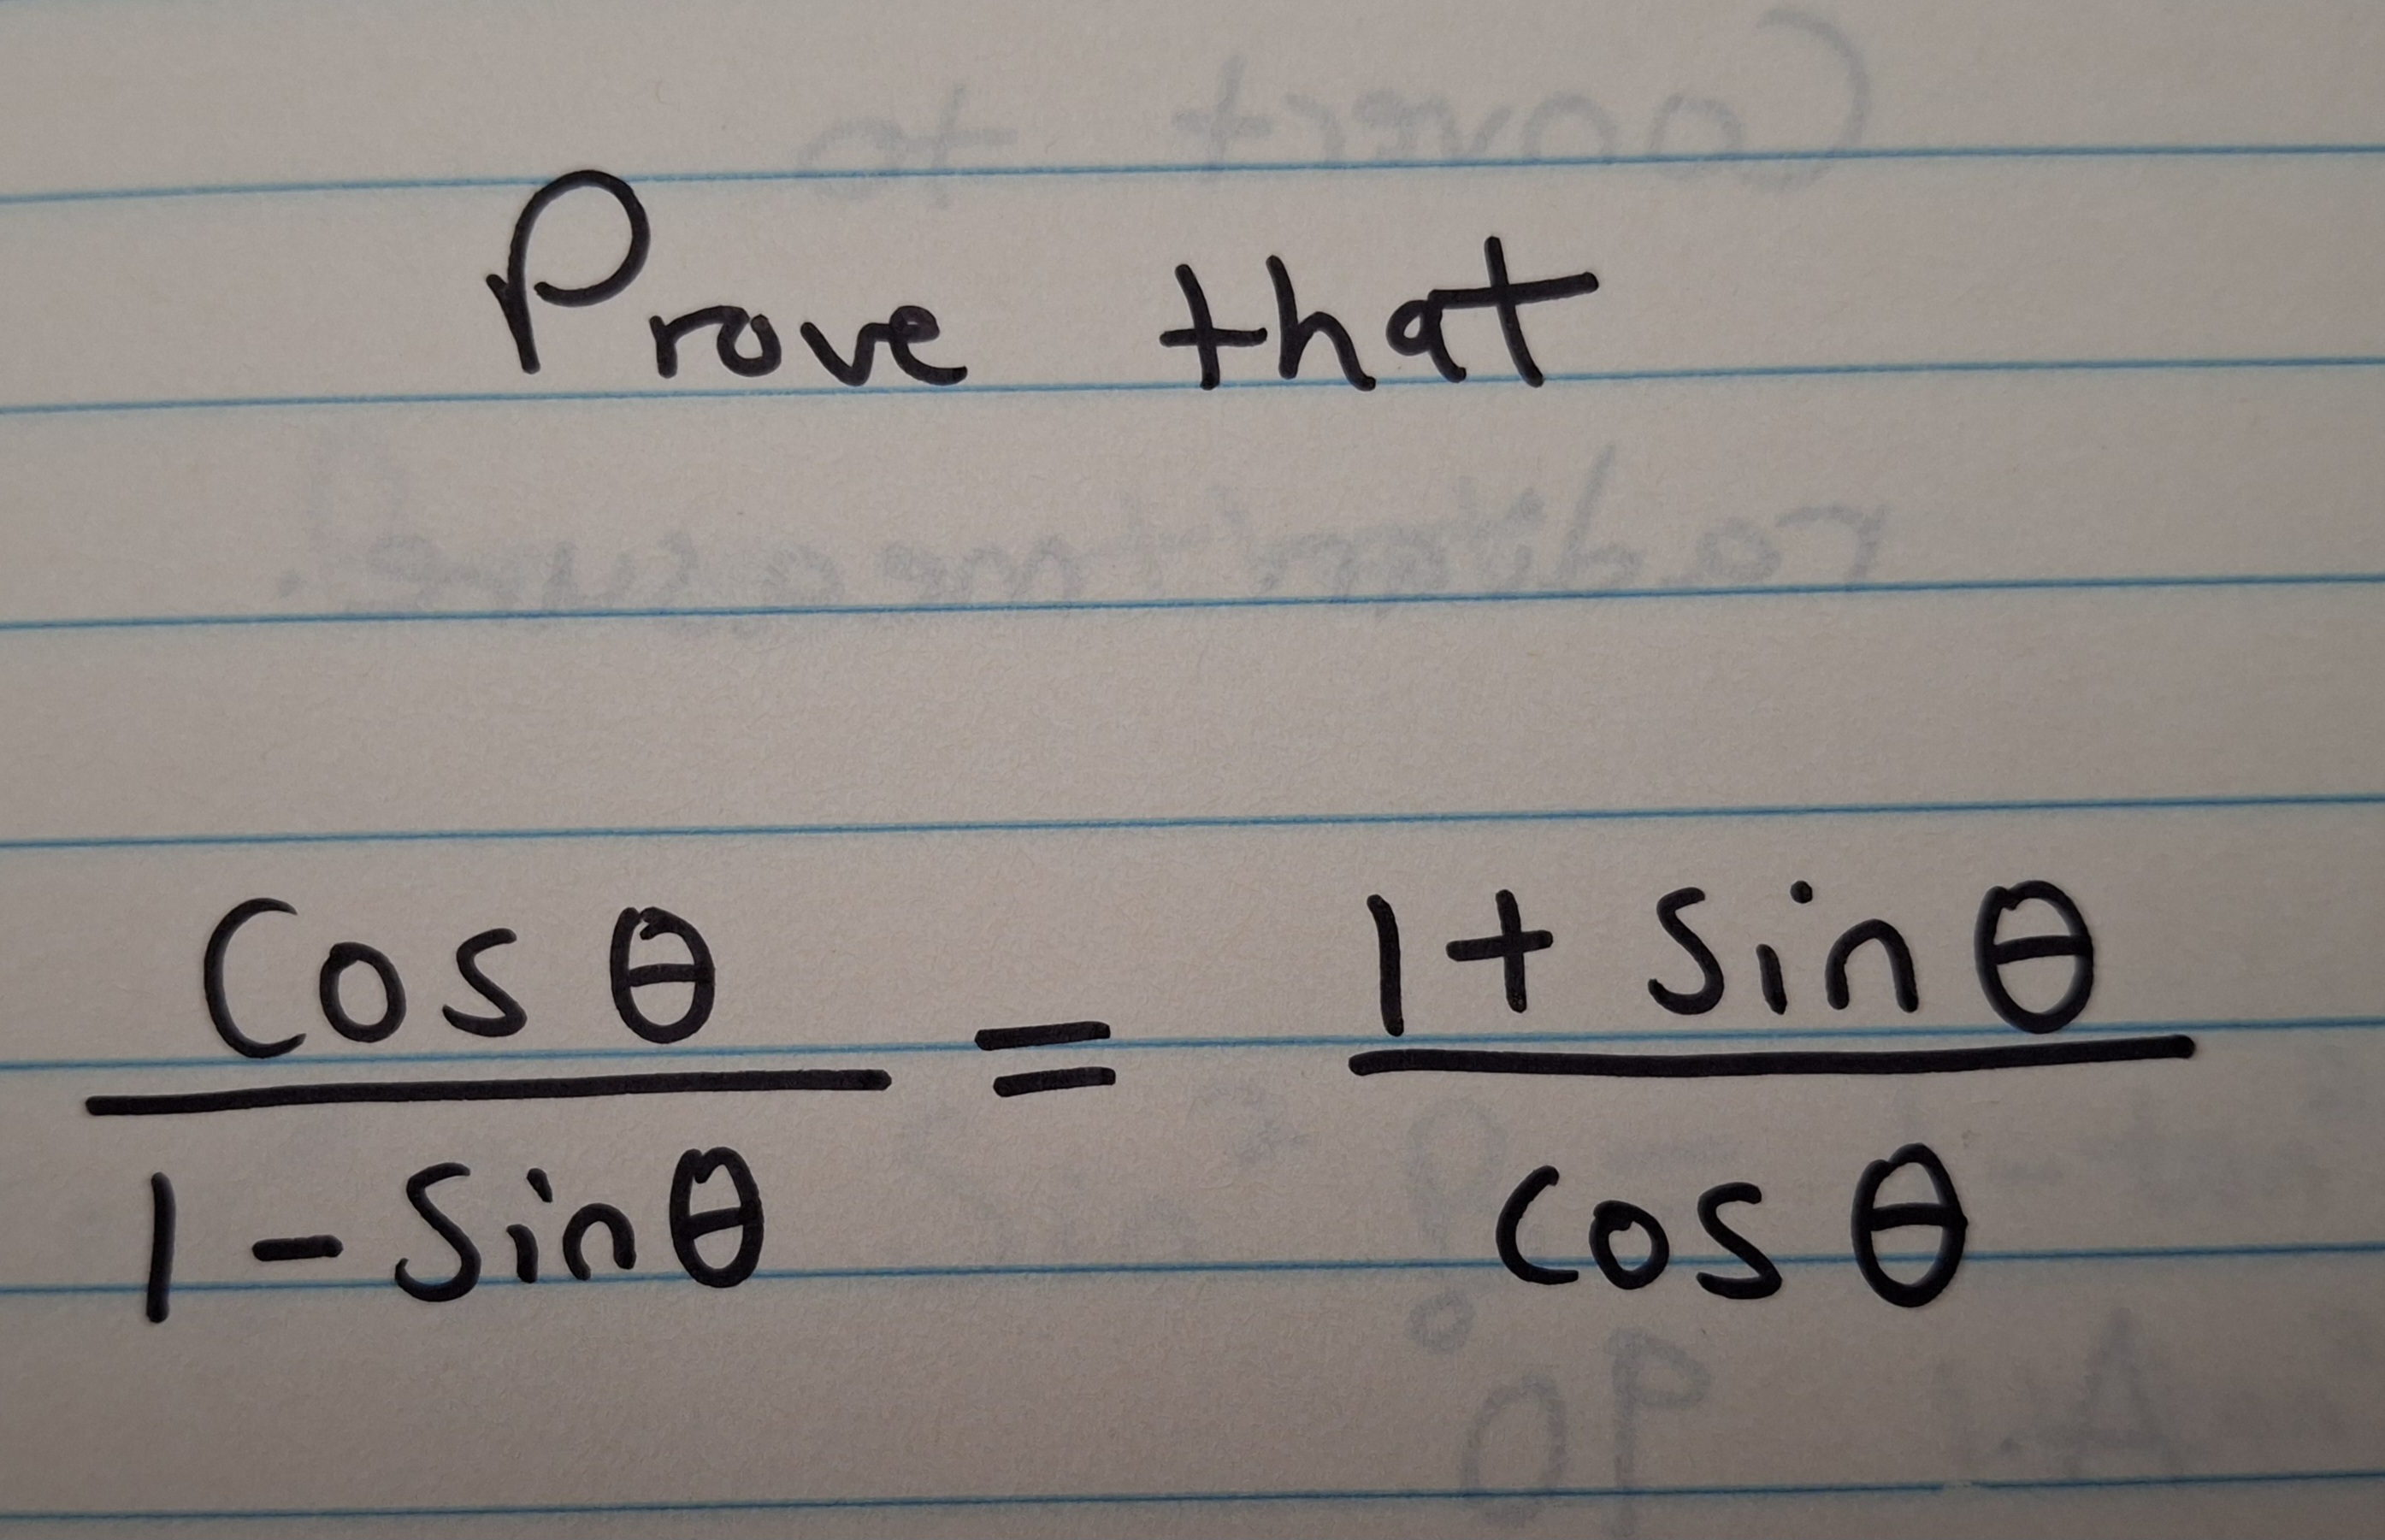 Prove that
Cos θ / 1 - Sinθ = 1 + Sin θ / Cos θ